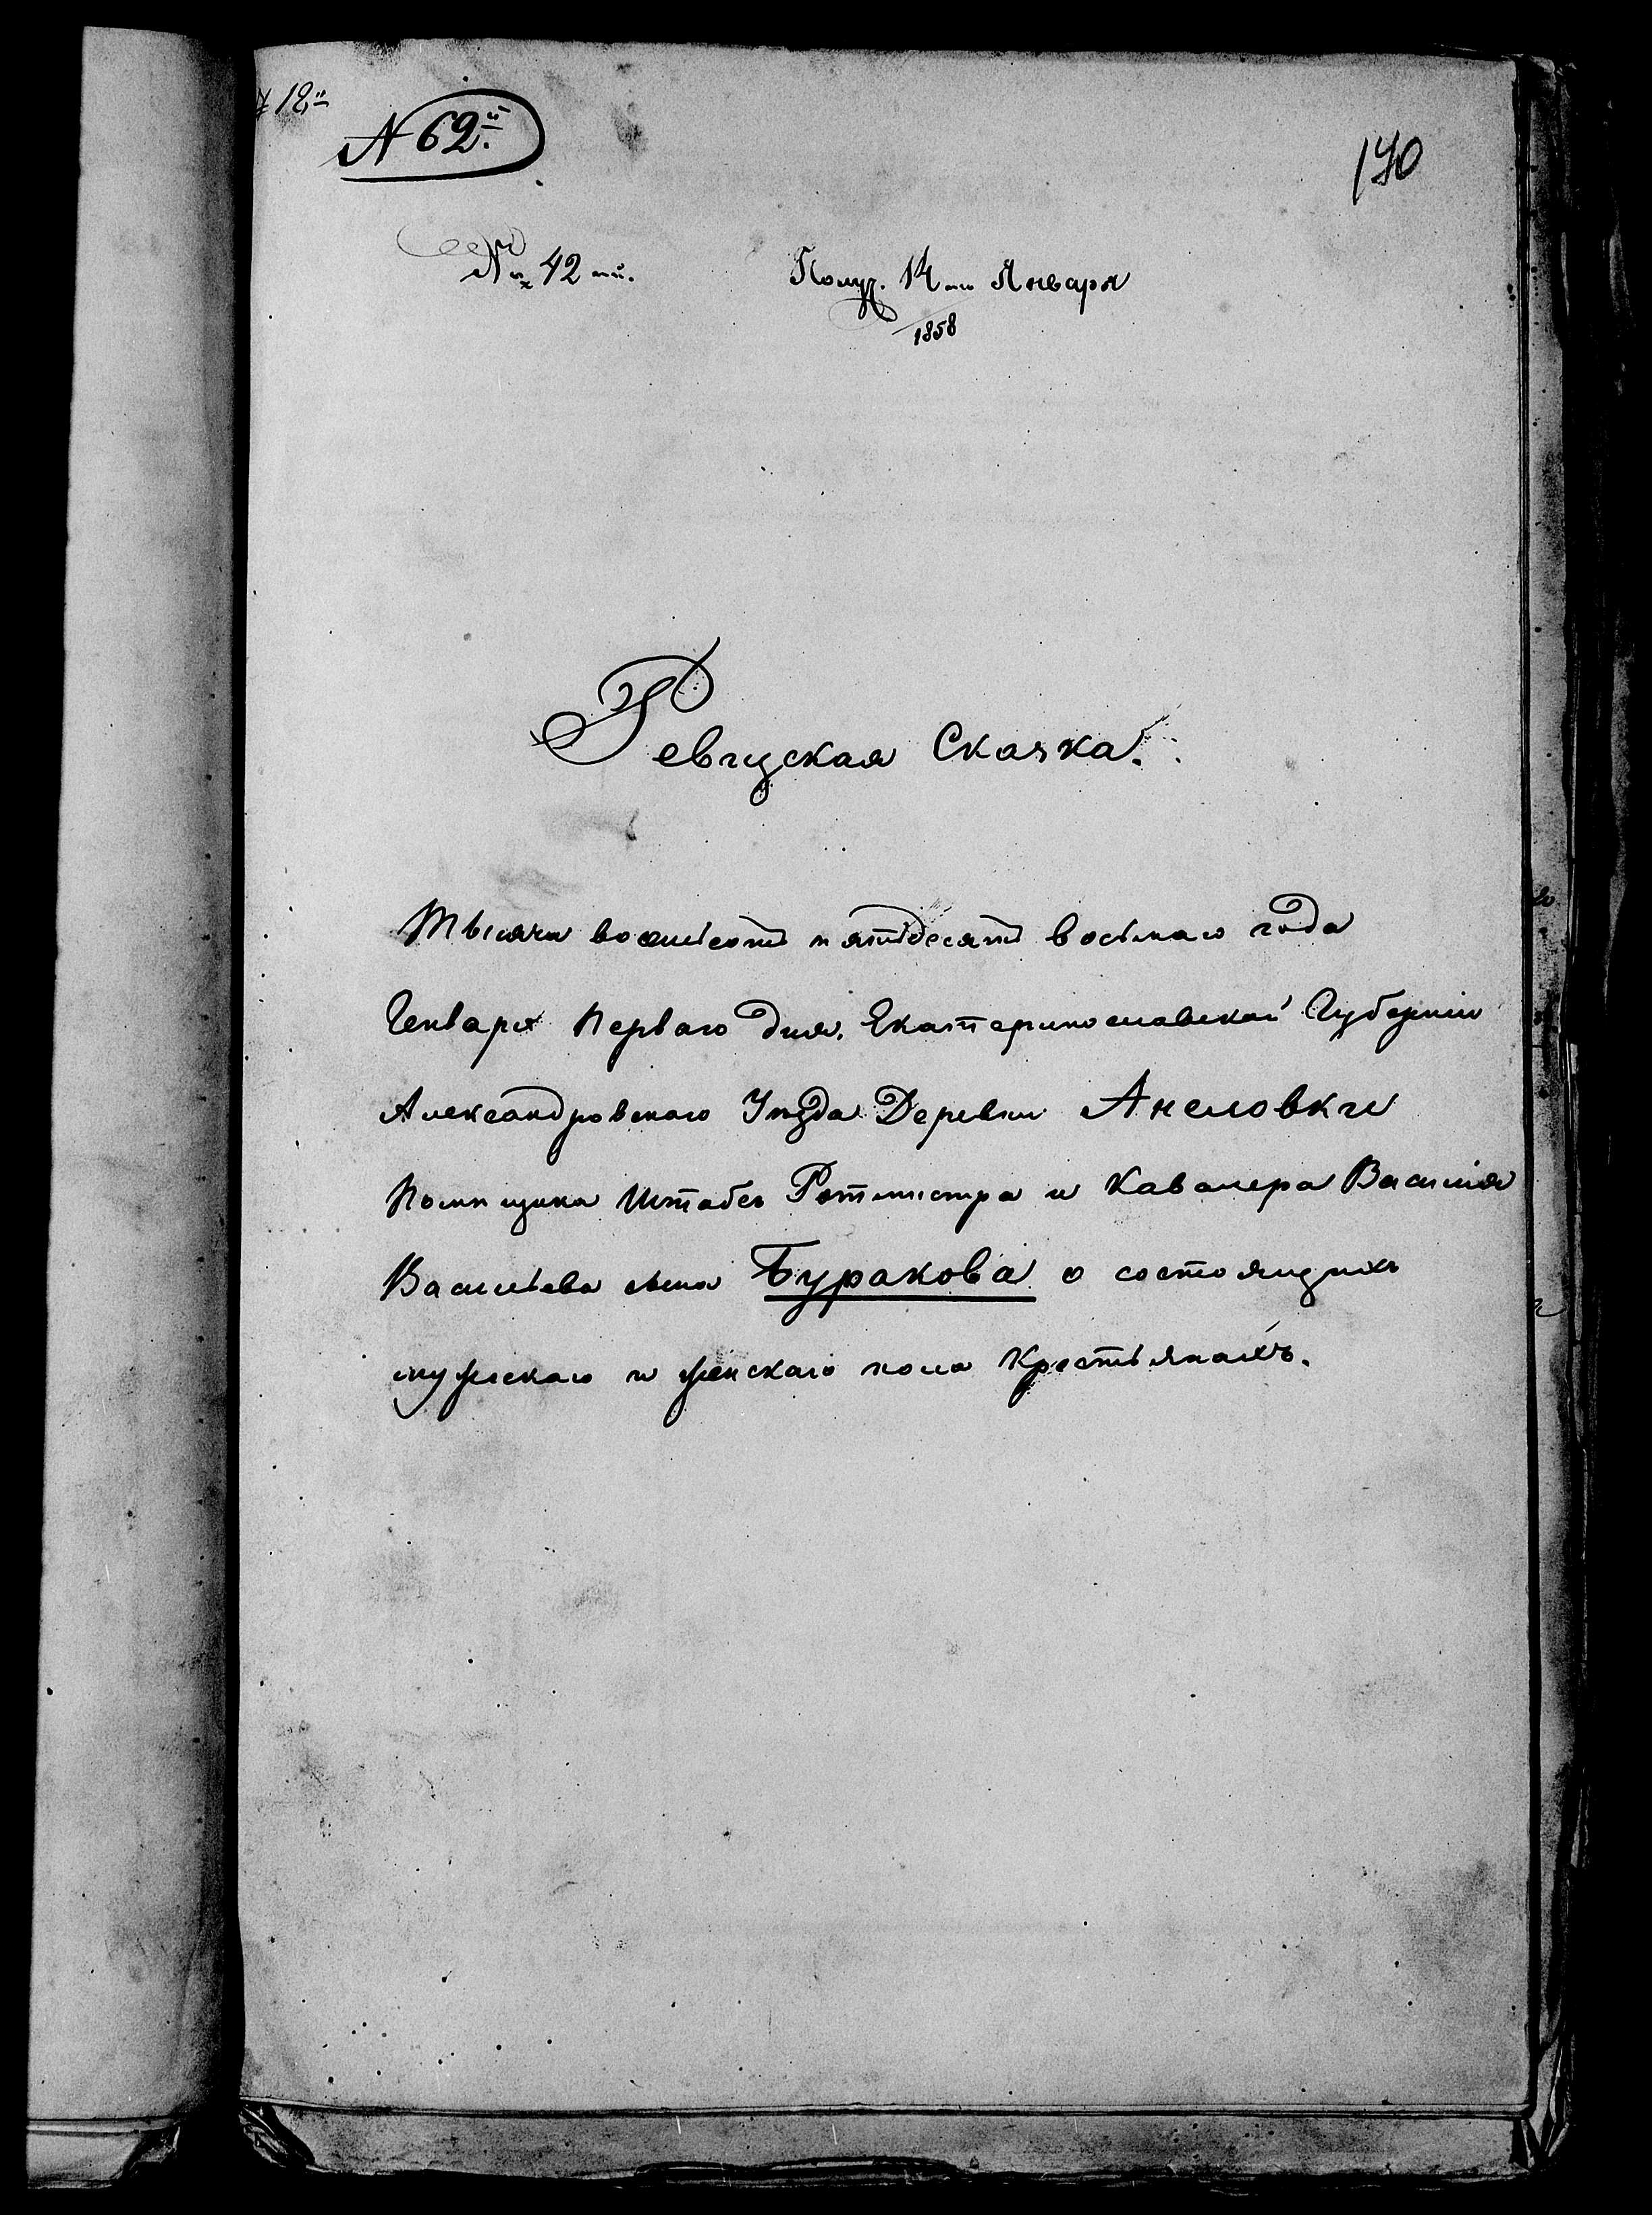 № 62й
170
№ 42й.
Получ. 14го Января
1858
Ревизская Сказка.
Тысяча восемьсотъ пятьдесятъ восьмаго года
Генваря перваго дня, Екатеринославской Губерніи
Александровскаго Уезда Деревни Анеловки
Помѣщика Штабсъ Ротмистра и Кавалера Василія
Васильева сына Буракова о состоящихъ
мужескаго и женскаго пола Крестьянахъ.